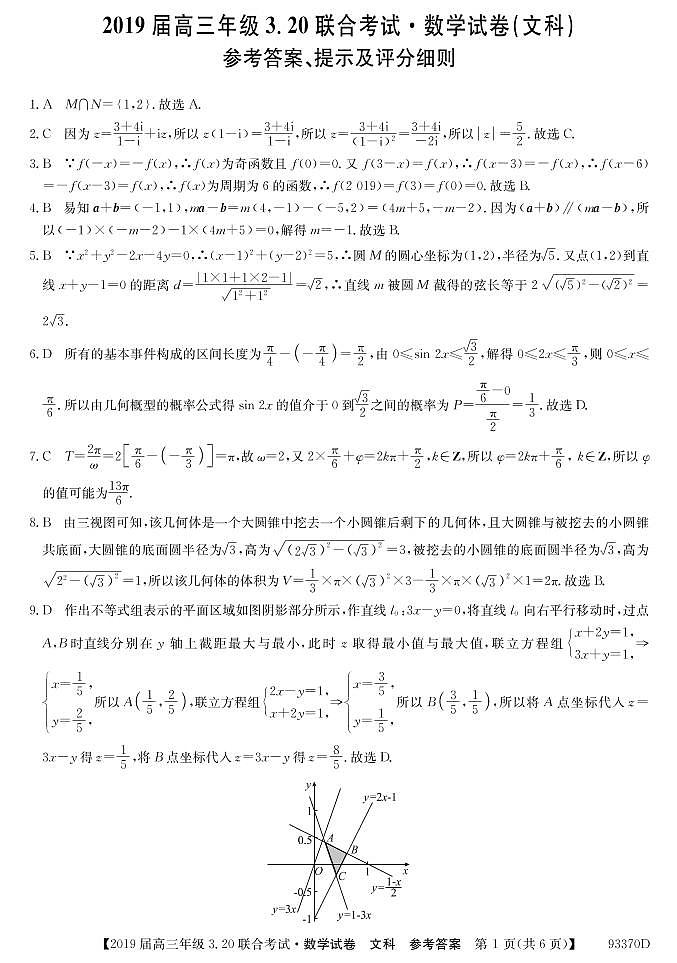 2019 届高三年级 3.20 联合考试·数学试卷(文科)
参考答案、提示及评分细则
1. A M∩N={1,2}.故选 A.
2. C 因为 z=\frac{3+4i}{1-i}+iz,所以 z(1-i)=\frac{3+4i}{1-i},所以 z=\frac{3+4i}{(1-i)^2}=\frac{3+4i}{-2i},所以|z|=\frac{5}{2}.故选 C.
3. B ∵f(-x)=-f(x),∴f(x)为奇函数且 f(0)=0.又 f(3-x)=f(x),∴f(x-3)=-f(x),∴f(x-6)
=-f(x-3)=f(x),∴f(x)为周期为 6 的函数,∴f(2 019)=f(3)=f(0)=0.故选 B.
4. B 易知 a+b=(-1,1),ma-b=m(4,-1)-(-5,2)=(4m+5,-m-2).因为(a+b)∥(ma-b),所
以(-1)×(-m-2)-1×(4m+5)=0,解得 m=-1.故选 B.
5. B ∵x²+y²-2x-4y=0,∴(x-1)²+(y-2)²=5,∴圆 M 的圆心坐标为(1,2),半径为√5.又点(1,2)到直
线 x+y-1=0 的距离 d=\frac{|1×1+1×2-1|}{\sqrt{1²+1²}}=√2,∴直线 m 被圆 M 截得的弦长等于 2\sqrt{(√5)²-(√2)²}=
2√3.
6. D 所有的基本事件构成的区间长度为\frac{π}{4}-(-\frac{π}{4})=\frac{π}{2},由 0≤sin 2x≤\frac{√3}{2},解得 0≤2x≤\frac{π}{3},则 0≤x≤
\frac{π}{6}.所以由几何概型的概率公式得 sin 2x 的值介于 0 到\frac{√3}{2}之间的概率为 P=\frac{\frac{π}{6}-0}{\frac{π}{2}}=\frac{1}{3}.故选 D.
7. C T=\frac{2π}{ω}=2[\frac{π}{6}-(-\frac{π}{3})]=π,故 ω=2,又 2×\frac{π}{6}+φ=2kπ+\frac{π}{2},k∈Z,所以 φ=2kπ+\frac{π}{6},k∈Z,所以 φ
的值可能为\frac{13π}{6}.
8. B 由三视图可知,该几何体是一个大圆锥中挖去一个小圆锥后剩下的几何体,且大圆锥与被挖去的小圆锥
共底面,大圆锥的底面圆半径为√3,高为\sqrt{(2√3)²-(√3)²}=3,被挖去的小圆锥的底面圆半径为√3,高为
\sqrt{2²-(√3)²}=1,所以该几何体的体积为 V=\frac{1}{3}×π×(√3)²×3-\frac{1}{3}×π×(√3)²×1=2π.故选 B.
9. D 作出不等式组表示的平面区域如图阴影部分所示,作直线 l₀:3x-y=0,将直线 l₀ 向右平行移动时,过点
A,B 时直线分别在 y 轴上截距最大与最小,此时 z 取得最小值与最大值,联立方程组{x+2y=1, 3x+y=1,⇒
{x=\frac{1}{5}, y=\frac{2}{5},所以 A(\frac{1}{5},\frac{2}{5}),联立方程组{2x-y=1, x+2y=1,⇒{x=\frac{3}{5}, y=\frac{1}{5},所以 B(\frac{3}{5},\frac{1}{5}),所以将 A 点坐标代入 z=
3x-y 得 z=\frac{1}{5},将 B 点坐标代入 z=3x-y 得 z=\frac{8}{5}.故选 D.
y
y=2x-1
1
0.5
A
B
O
C
1
x
y=\frac{1-x}{2}
-0.5
y=3x
-1
y=1-3x
【2019 届高三年级 3.20 联合考试·数学试卷 文科 参考答案 第 1 页(共 6 页)】 93370D